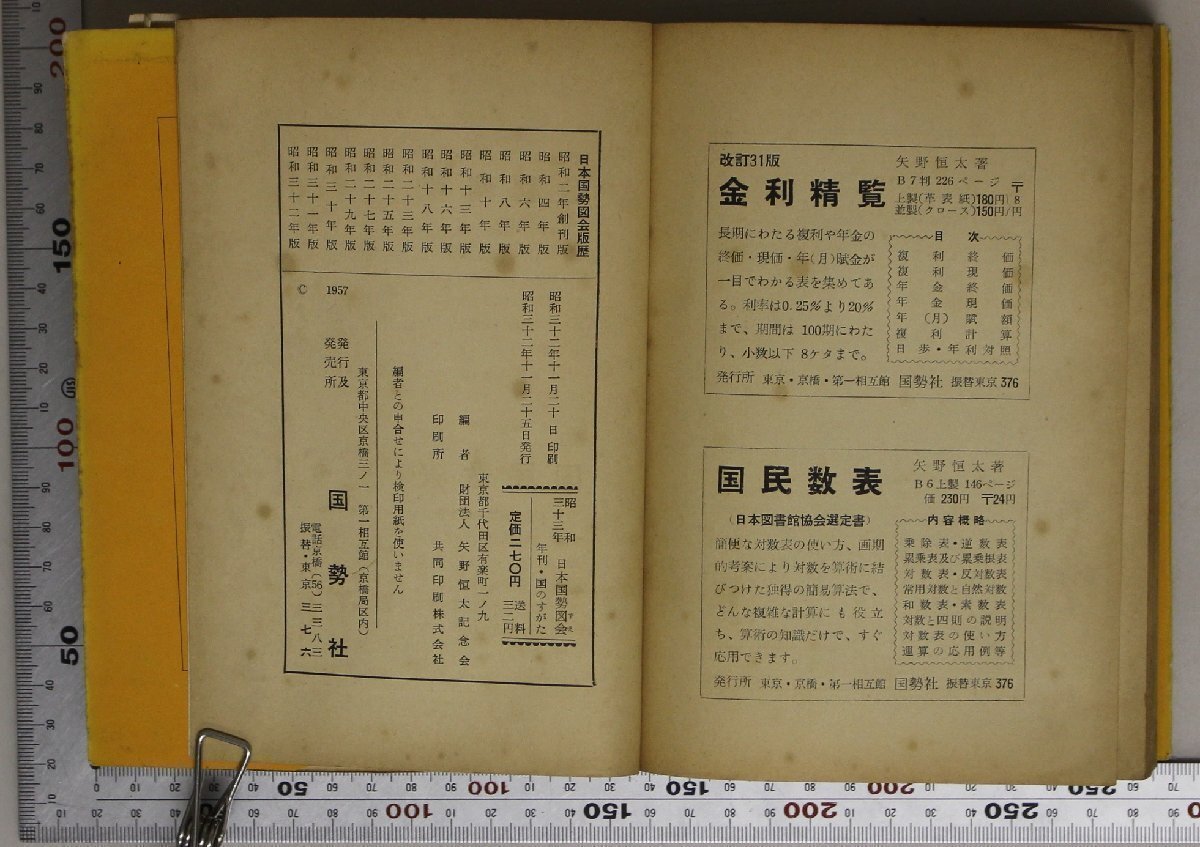 改訂31版
矢野恒太著
金利精覧
B7判 226ページ
上製(革表紙)180円
並製(クロース)150円
〒8円
長期にわたる複利や年金の
終価・現価・年(月)賦金が
一目でわかる表を集めてあ
る。利率は0.25%より20%
まで、期間は 100期にわた
り、小数以下 8ケタまで。
目次
複利終価
複利現価
年金終価
年金現価
年(月)賦額
複利計算
日歩・年利対照
発行所 東京・京橋・第一相互館 国勢社 振替東京 376
国民数表
矢野恒太著
B6上製 146ページ
価 230円 〒24円
(日本図書館協会選定書)
簡便な対数表の使い方、画期
的考案により対数を算術に結
びつけた独得の簡易算法で、
どんな複雑な計算にも役立
ち、算術の知識だけで、すぐ
応用できます。
内容概略
乗除表・逆数表
累乗表及び累乗根表
対数表・反対数表
常用対数と自然対数
和数表・素数表
対数と四則の説明
対数表の使い方
運算の応用例等
発行所 東京・京橋・第一相互館 国勢社 振替東京 376
日本国勢図会版歴
昭和二年創刊版
昭和四年版
昭和六年版
昭和八年版
昭和十年版
昭和十三年版
昭和十六年版
昭和十八年版
昭和二十三年版
昭和二十五年版
昭和二十七年版
昭和二十九年版
昭和三十年版
昭和三十一年版
昭和三十二年版
© 1957
昭和三十二年十一月二十日 印刷
昭和三十二年十一月二十五日発行
昭和三十三年 日本国勢図会
年刊・国のすがた
定価二七〇円 送料三二円
東京都千代田区有楽町一ノ九
編者 財団法人 矢野恒太記念会
印刷所 共同印刷株式会社
編者との申合せにより検印用紙を使いません
東京都中央区京橋三ノ一 第一相互館(京橋局区内)
発行及発売所 国勢社
電話京橋(56)三三八三
振替・東京 三七六